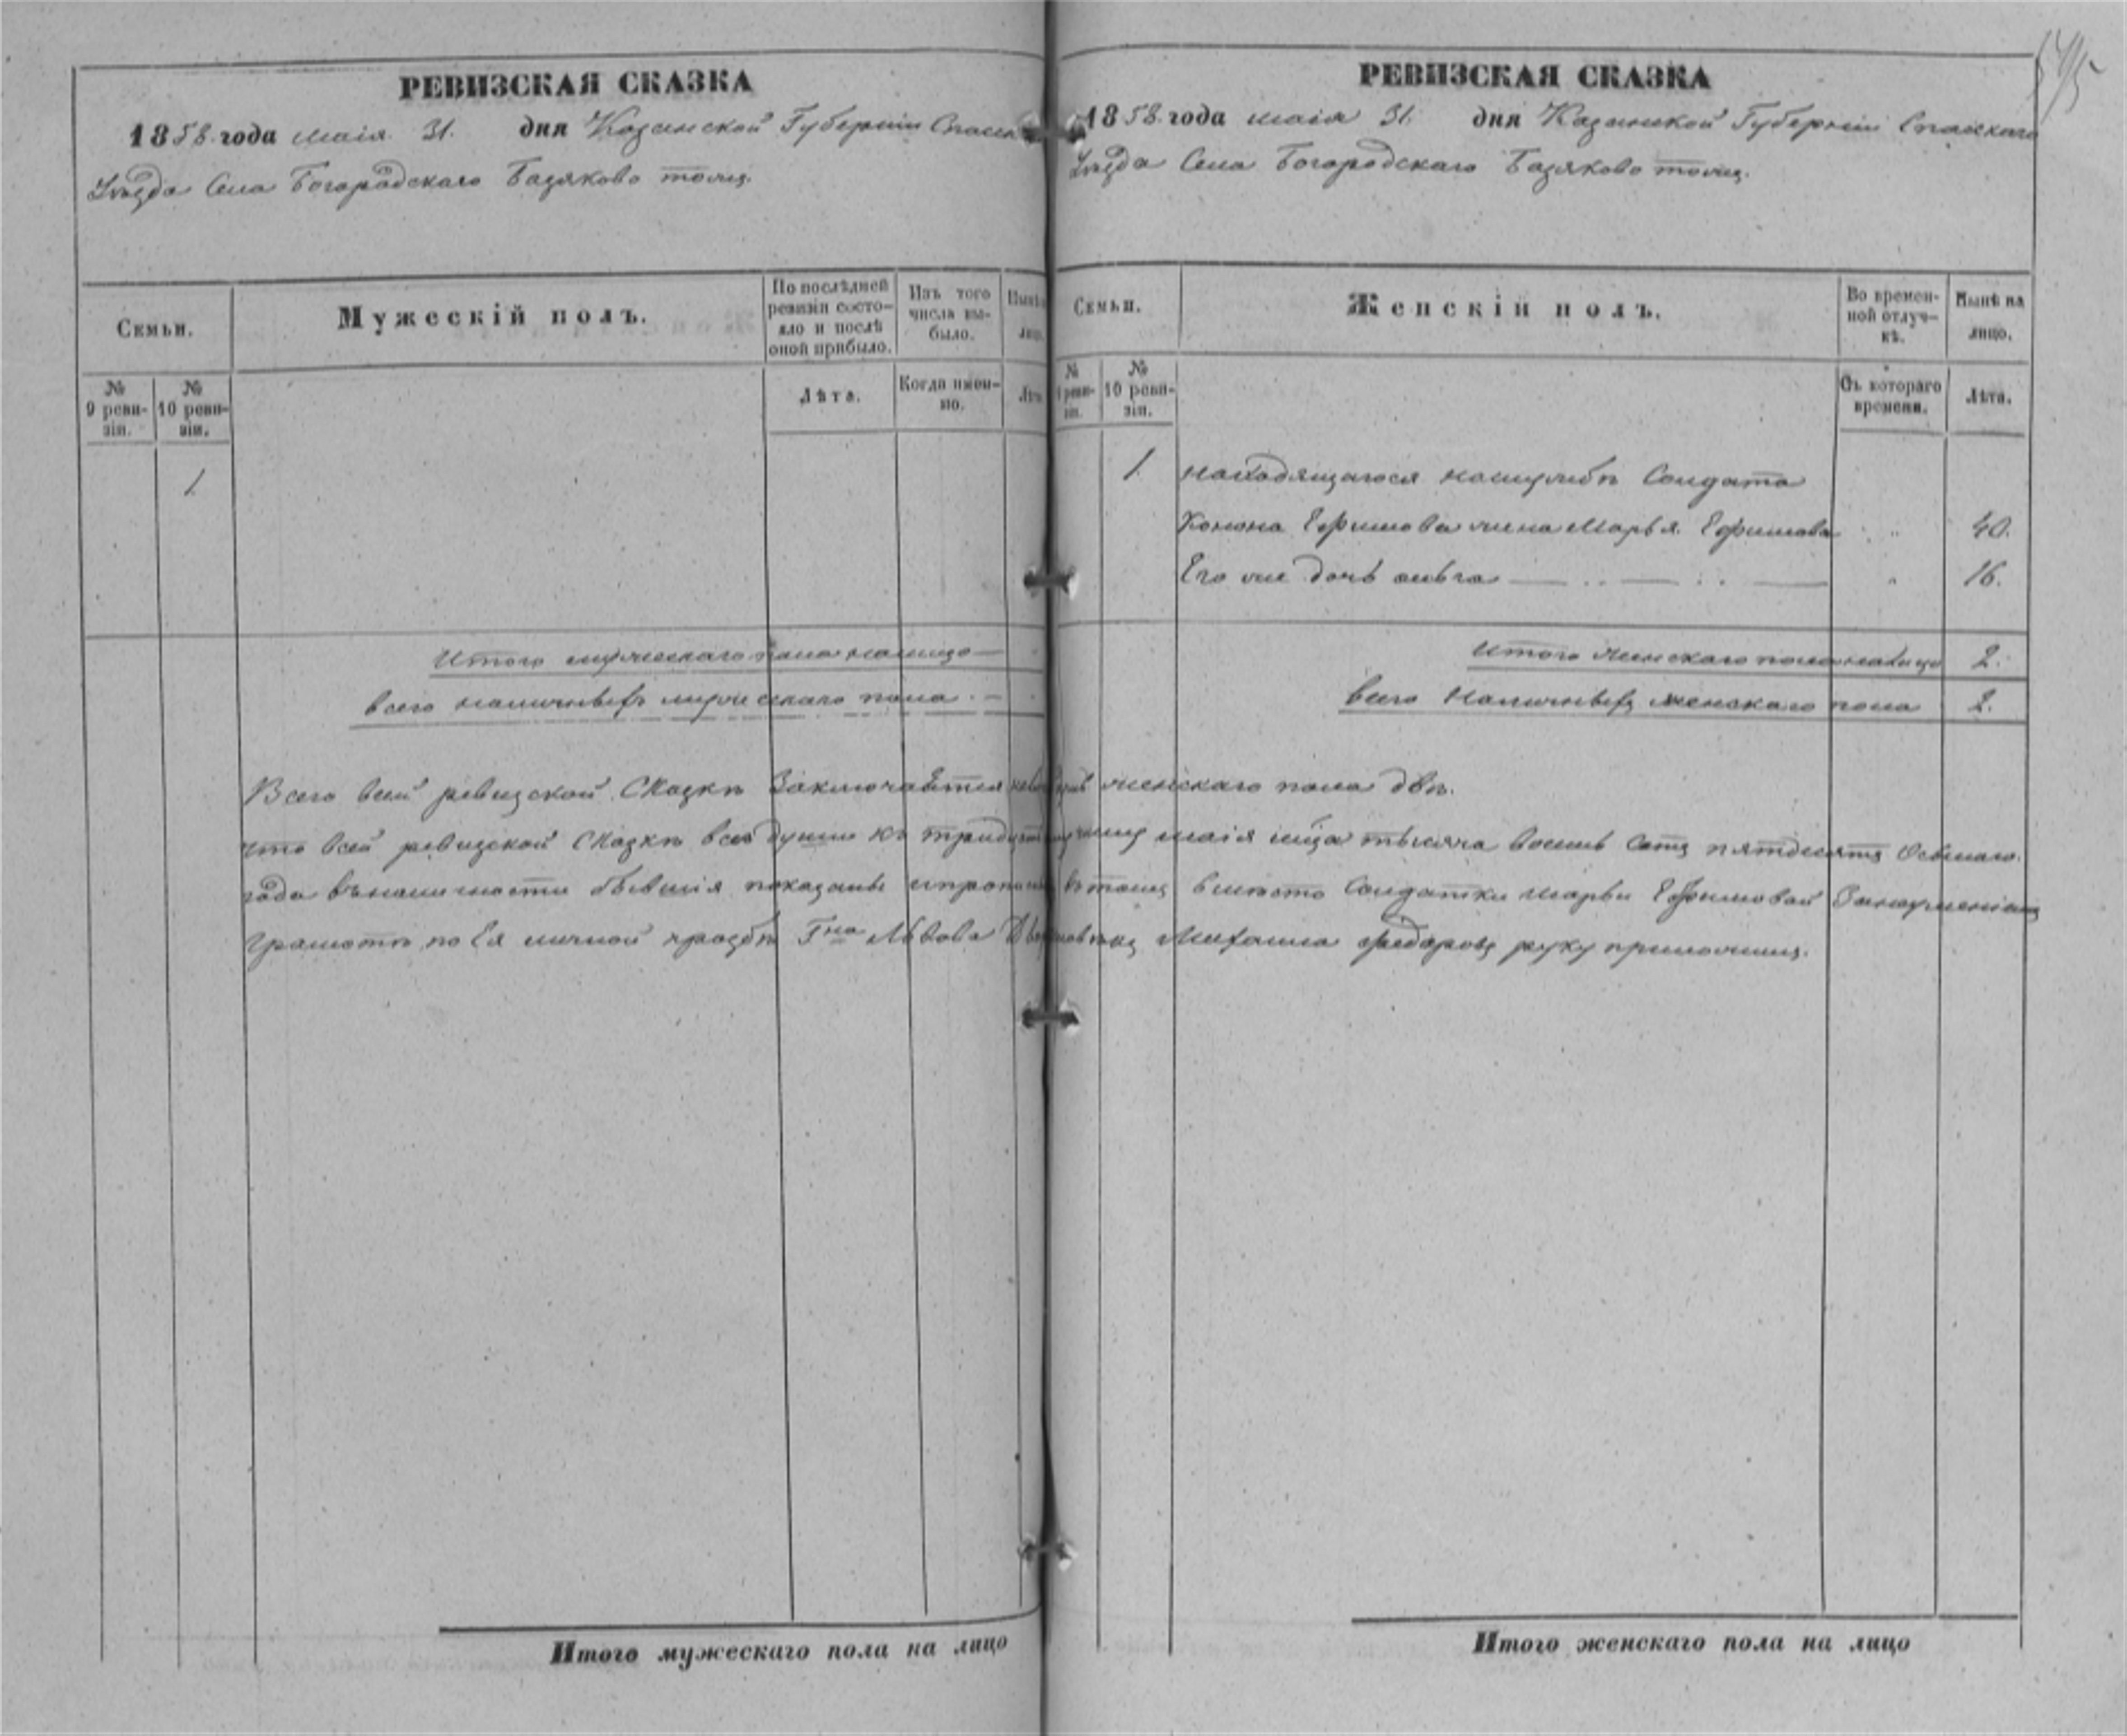 РЕВИЗСКАЯ СКАЗКА
1858 года маія 31. дня Казанской Губерніи Спаск
Уѣзда Села Богородскаго Базяково тожъ.
Семьи.
Мужескій полъ.
По послѣдней ревизіи состояло и послѣ оной прибыло.
Изъ того числа выбыло.
№ 9 ревизіи.
№ 10 ревизіи.
Лѣта.
Когда именно.
1
Итого мужескаго пола налицо —
Всего наличныхъ мужескаго пола . —
РЕВИЗСКАЯ СКАЗКА
1858 года маія 31. дня Казанской Губерніи Спаскаго
Уѣзда Села Богородскаго Базяково тожъ.
Семьи.
Женскій полъ.
Во временной отлучкѣ.
Нынѣ на лицо.
№
10 ревизіи.
Съ котораго времени.
Лѣта.
1. Находящагося наслужбѣ Солдата
Конона Ефимова жена Марья Ефимова 40.
Его же дочь 16.
Итого женскаго пола налицо 2.
Всего Наличныхъ женскаго пола 2.
Всего всей ревизской Сказкѣ Заключается женскаго пола двѣ.
что всей ревизской Сказкѣ все души къ маія мца тысяча восемь сотъ пятдесятъ Осьмаго.
года вналичности бывшія показаны втомъ вместо Солдатки Марьи Ефимовой Занеумѣніемъ
Грамотѣ по Ея личной прозбѣ Гна Львова Михаила Федоровъ руку приложилъ.
Итого мужескаго пола на лицо
Итого женскаго пола на лицо